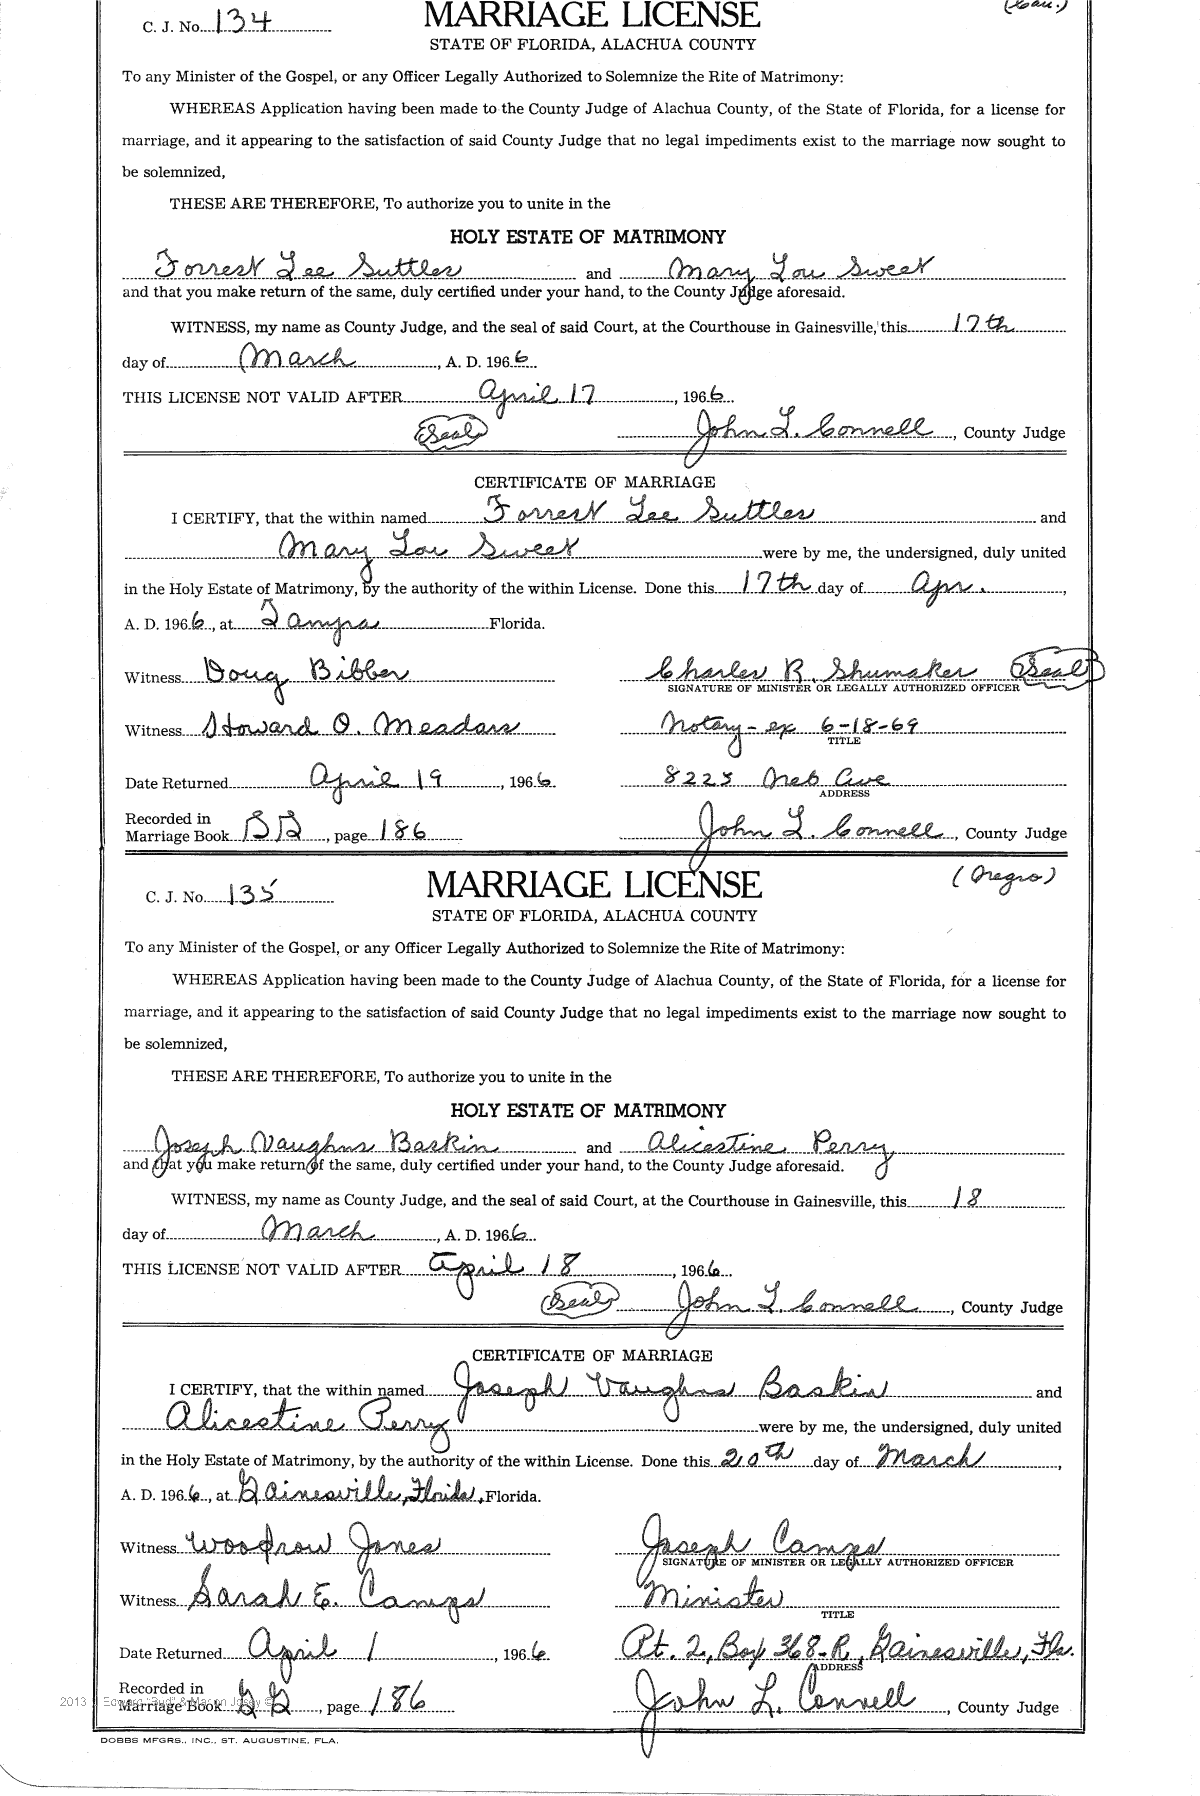 C. J. No. 134 MARRIAGE LICENSE (Cau.)
STATE OF FLORIDA, ALACHUA COUNTY
To any Minister of the Gospel, or any Officer Legally Authorized to Solemnize the Rite of Matrimony:
WHEREAS Application having been made to the County Judge of Alachua County, of the State of Florida, for a license for
marriage, and it appearing to the satisfaction of said County Judge that no legal impediments exist to the marriage now sought to
be solemnized,
THESE ARE THEREFORE, To authorize you to unite in the
HOLY ESTATE OF MATRIMONY
Forrest Lee Suttles and Mary Lou Sweet
and that you make return of the same, duly certified under your hand, to the County Judge aforesaid.
WITNESS, my name as County Judge, and the seal of said Court, at the Courthouse in Gainesville, this 17th
day of March, A. D. 1966
THIS LICENSE NOT VALID AFTER April 17, 1966
(Seal) John L. Connell, County Judge
CERTIFICATE OF MARRIAGE
I CERTIFY, that the within named Forrest Lee Suttles and
Mary Lou Sweet were by me, the undersigned, duly united
in the Holy Estate of Matrimony, by the authority of the within License. Done this 17th day of Apr.,
A. D. 1966, at Tampa Florida.
Witness Doug Bibber Charles R. Shumaker (Seal)
SIGNATURE OF MINISTER OR LEGALLY AUTHORIZED OFFICER
Witness Howard O. Meadors Notary - ex 6-18-69
TITLE
Date Returned April 19, 1966 8225 Neb Ave
ADDRESS
Recorded in
Marriage Book , page 186 John L. Connell, County Judge
C. J. No. 135 MARRIAGE LICENSE (Negro)
STATE OF FLORIDA, ALACHUA COUNTY
To any Minister of the Gospel, or any Officer Legally Authorized to Solemnize the Rite of Matrimony:
WHEREAS Application having been made to the County Judge of Alachua County, of the State of Florida, for a license for
marriage, and it appearing to the satisfaction of said County Judge that no legal impediments exist to the marriage now sought to
be solemnized,
THESE ARE THEREFORE, To authorize you to unite in the
HOLY ESTATE OF MATRIMONY
Joseph Vaughns Baskin and Alicestine Perry
and that you make return of the same, duly certified under your hand, to the County Judge aforesaid.
WITNESS, my name as County Judge, and the seal of said Court, at the Courthouse in Gainesville, this 18
day of March, A. D. 1966
THIS LICENSE NOT VALID AFTER April 18, 1966
(Seal) John L. Connell, County Judge
CERTIFICATE OF MARRIAGE
I CERTIFY, that the within named Joseph Vaughns Baskin and
Alicestine Perry were by me, the undersigned, duly united
in the Holy Estate of Matrimony, by the authority of the within License. Done this 20th day of March,
A. D. 1966, at Gainesville, Florida, Florida.
Witness Woodrow Jones Joseph Camps
SIGNATURE OF MINISTER OR LEGALLY AUTHORIZED OFFICER
Witness Sarah E. Camps Minister
TITLE
Date Returned April 1, 1966 Rt. 2, Box 368-R, Gainesville, Fla.
ADDRESS
Recorded in
Marriage Book , page 186 John L. Connell, County Judge
DOBBS MFGRS., INC., ST. AUGUSTINE, FLA.